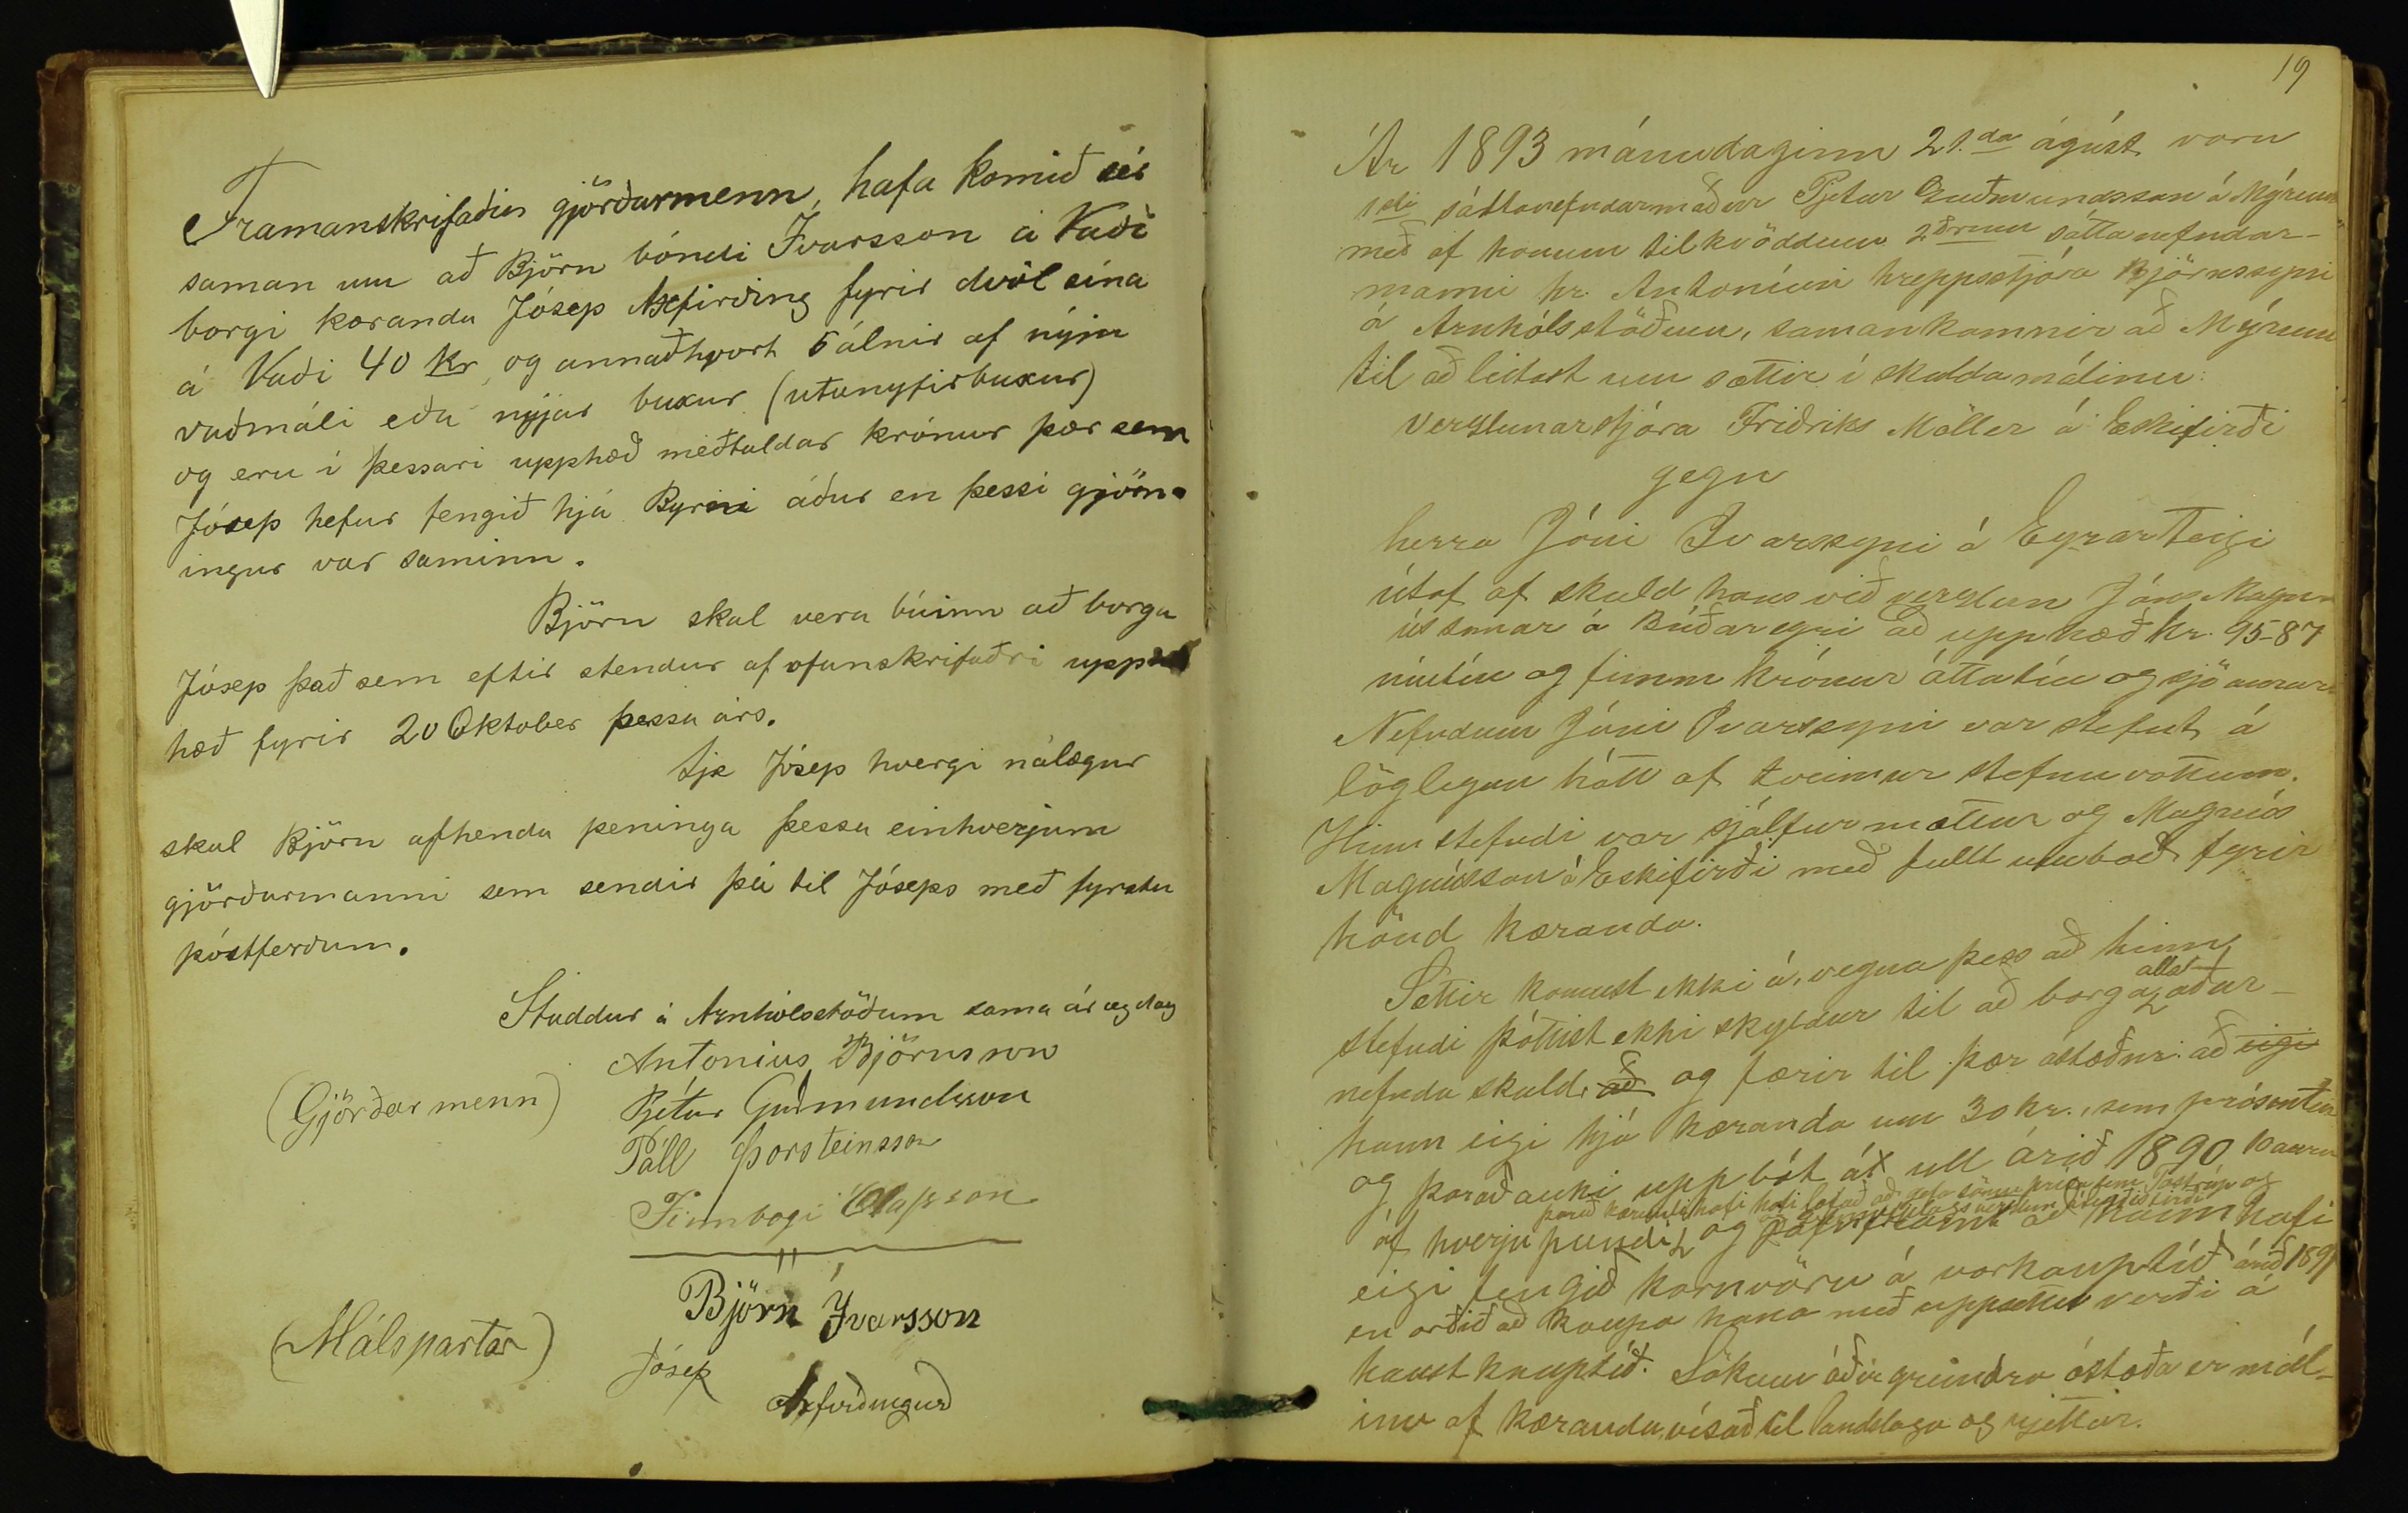 Framanskrifaðir gjörðarmenn, hafa komið sér
saman um að Björn bóndi Ívarsson á Vaði
borgi kæranda Jósep Axfirðing fyrir dvöl sína
á Vaði 40 kr, og annaðhvort 5 álnir af nýju
vaðmáli eða nýjar buxur (utanyfirbuxur)
og eru í þessari upphæð meðtaldar krónur þær sem
Jósep hefur fengið hjá Byrni áður en þessi gjörn-
ingur var saminn.
Björn skal vera búinn að borga
Jósep það sem eftir stendur af ofanskrifaðri upp
hæð fyrir 20 Oktober þessa árs.
Sje Jósep hvergi nálægur
skal Björn afhenda peninga þessa einhverjum
gjörðarmanni sem sendir þá til Jóseps með fyrstu
póstferðum.
Staddur á Arnhólsstöðum sama ár og dag
Antonius Björnsson
(Gjörðarmenn)
Pjétur Guðmundsson
Páll Þorsteinsson
Finnbogi Ólafsson
Björn Ívarsson
(Málspartar)
Jósep
Axfirðingur
19
Ár 1893 mánudaginn 21.da ágúst voru
1sti sáttanefndarmaður Pjetur Guðmundsson á Mýrum
með af honum tilkvöddum 2ðrum sáttanefndar-
manni hr. Antoníusi hreppstjóra Björnssyni
á Arnhólsstöðum, samankomnir að Mýrum
til að leitast um sættir í skuldamálinu:
Verslunarstjóra Friðriks Möller á Eskifirði
gegn
herra Jóni Ívarssyni á Eyrarteigi
útaf af skuld hans við verslun Jóns Magn-
ússonar á Búðareyri að upphæð kr. 95-87
níutíu og fimm krónur áttatíu og sjö aurar
Nefndum Jóni Ívarssyni var stefnt á
löglegan hátt af tveimur stefnuvottum.
Hinn stefndi var sjálfur mættur og Magnús
Magnússon á Eskifirði með fullt umboð fyrir
hönd kæranda.
Sættir komust ekki á, vegna þess að hinn
stefndi þóttist ekki skyldur til að borga allar áður-
nefnda skuld, að og færir til þær ástæður: að eigi
hann eigi hjá kæranda um 30 kr., sem prósentur
og þar að auki uppbót át ull árið 1890 10 aura
af hverju pundi, og að hann hafi
það kærandi hafi hafi lofað að gefa sömu prísa sem Tostrup og
eigi fengið kornvöru á vorkauptíð árið 1891
en orðið að kaupa hana með uppsettu verði á
haustkauptíð. Sökum áðurgreindra ástæða er mál-
inu af kæranda, vísað til landslaga og rjettar.